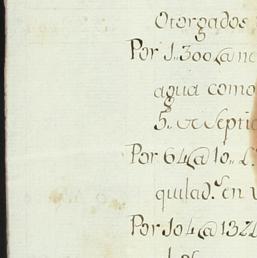 Otorgados
Por 1„300@ ne
agua como
5„ de Septie
Por 64@10„ L
quilad.ˢ en
Por 104@13